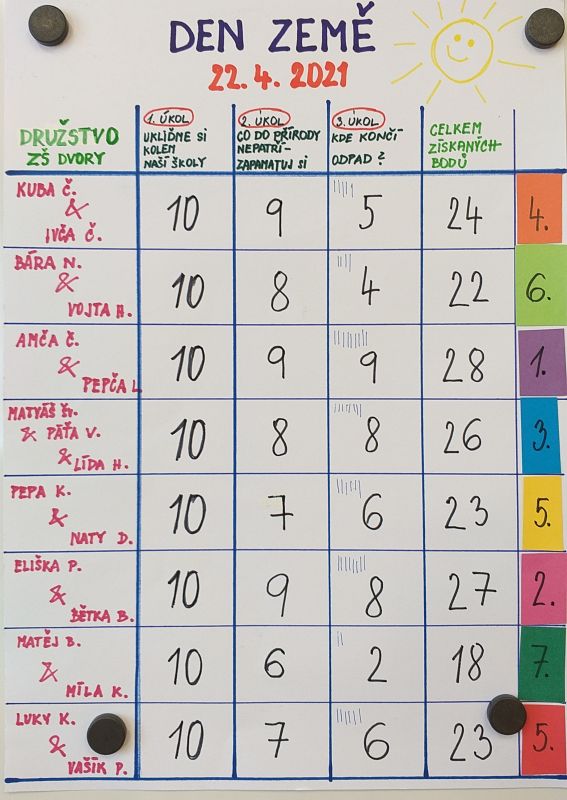 DEN ZEMĚ
22. 4. 2021
DRUŽSTVO
ZŠ DVORY
1. ÚKOL
UKLIĎME SI
KOLEM
NAŠÍ ŠKOLY
2. ÚKOL
CO DO PŘÍRODY
NEPATŘÍ-
ZAPAMATUJ SI
3. ÚKOL
KDE KONČÍ
ODPAD?
CELKEM
ZÍSKANÝCH
BODŮ
KUBA Č.
&
IVČA Č.
10 9 5 24 4.
BÁRA N.
&
VOJTA H.
10 8 4 22 6.
AMČA Č.
&
PEPČA L
10 9 9 28 1.
MATYÁŠ ŠT.
& PÁŤA V.
& LÍDA H.
10 8 8 26 3.
PEPA K.
&
NATY D.
10 7 6 23 5.
ELIŠKA P.
&
BĚTKA B.
10 9 8 27 2.
MATĚJ B.
&
MÍLA K.
10 6 2 18 7.
LUKY K.
&
VAŠÍK P.
10 7 6 23 5.